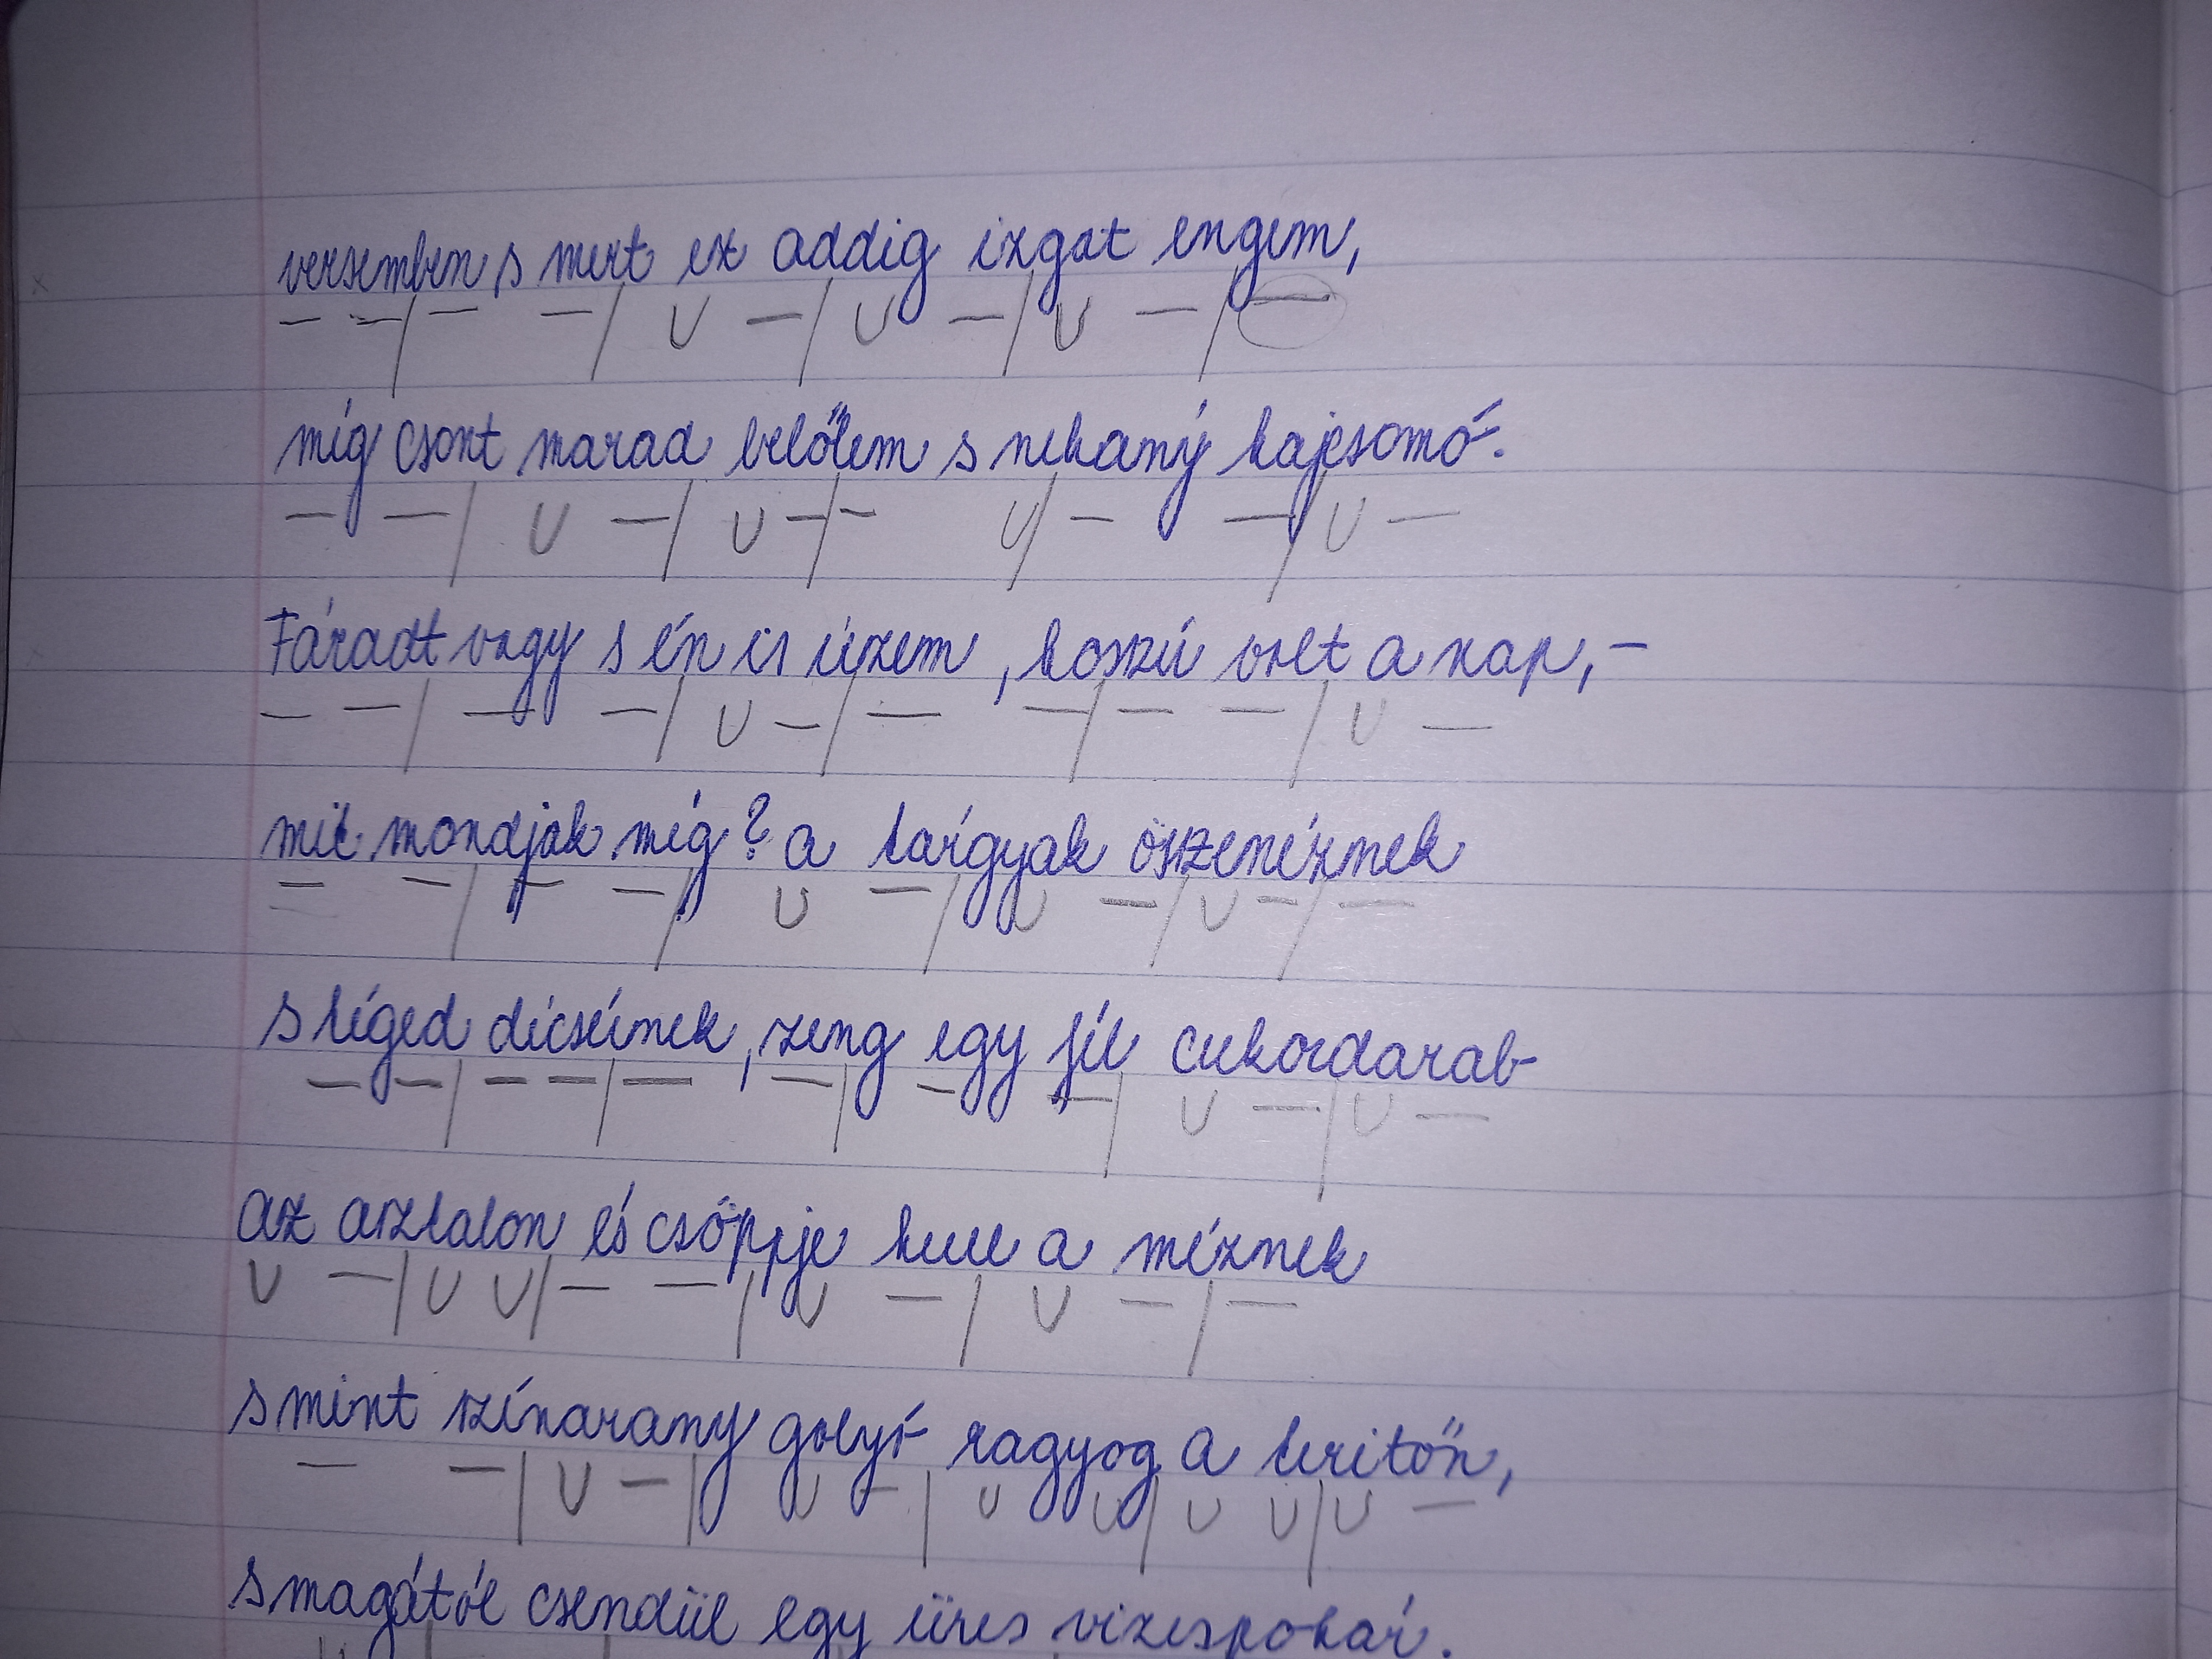 versemben s mert ez addig izgat engem,
míg csont marad belőlem s nehány hajcsomó.
Fáradt vagy s én is územ, hosszú volt a nap, –
mit mondjak még? a tárgyak összenéznek
s téged dícsérnek, zeng egy fél cukordarab
az asztalon és csöppje hull a méznek
s mint színarany golyó ragyog a teritőn,
s magától csendül egy üres vizespohár.